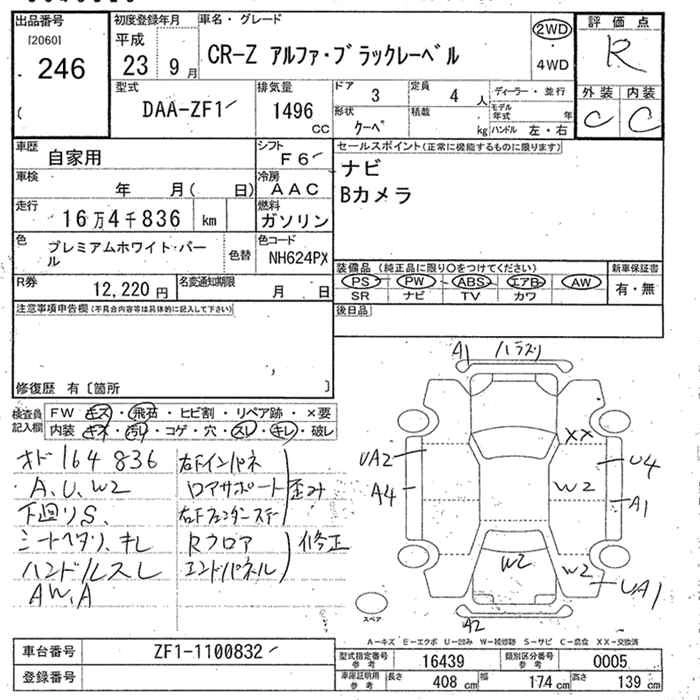 出品番号
[2060]
246
(
初度登録年月
平成
23 9月
車名・グレード
CR-Z アルファ・ブラックレーベル
2WD
4WD
評価点
R
外装 内装
C C
型式
DAA-ZF1
排気量
1496
CC
ドア
3
定員
4 人
形状
クーペ
積載
kg
ディーラー・並行
モデル年式 年
ハンドル 左・右
車歴
自家用
シフト
F6
車検
年 月( 日)
冷房
AAC
走行
16万4千836 km
燃料
ガソリン
色
プレミアムホワイト・パール
色替
色コード
NH624PX
R券
12,220円
名変通知期限
月 日
セールスポイント(正常に機能するものに限ります)
ナビ
Bカメラ
装備品 (純正品に限り○をつけてください)
PS PW ABS エアB AW
SR ナビ TV カワ
新車保証書
有・無
後日品
注意事項申告欄(不具合内容等は具体的に記入して下さい)
修復歴 有〔箇所 〕
検査員記入欄
FW キズ・飛石・ヒビ割・リペア跡・×要
内装 キズ・汚レ・コゲ・穴・スレ・キレ・破レ
オド164836
A、U、W2
下廻りS、
シートヘタリ、キレ
ハンドルスレ
AW、A
右Fインパネ
ロアサポート 歪み
右Fフェンダーステー
Rフロア 修正
エンドパネル
A1
XX
UA2
U4
A4
W2
A1
W2
W2
UA1
A2
スペア
A−キズ E−エクボ U−凹み W−補修跡 S−サビ C−腐食 XX−交換済
車台番号
ZF1-1100832
登録番号
型式指定番号
参考
16439
類別区分番号
参考
0005
車庫証明用
参考
長さ 408 cm
幅 174 cm
高さ 139 cm